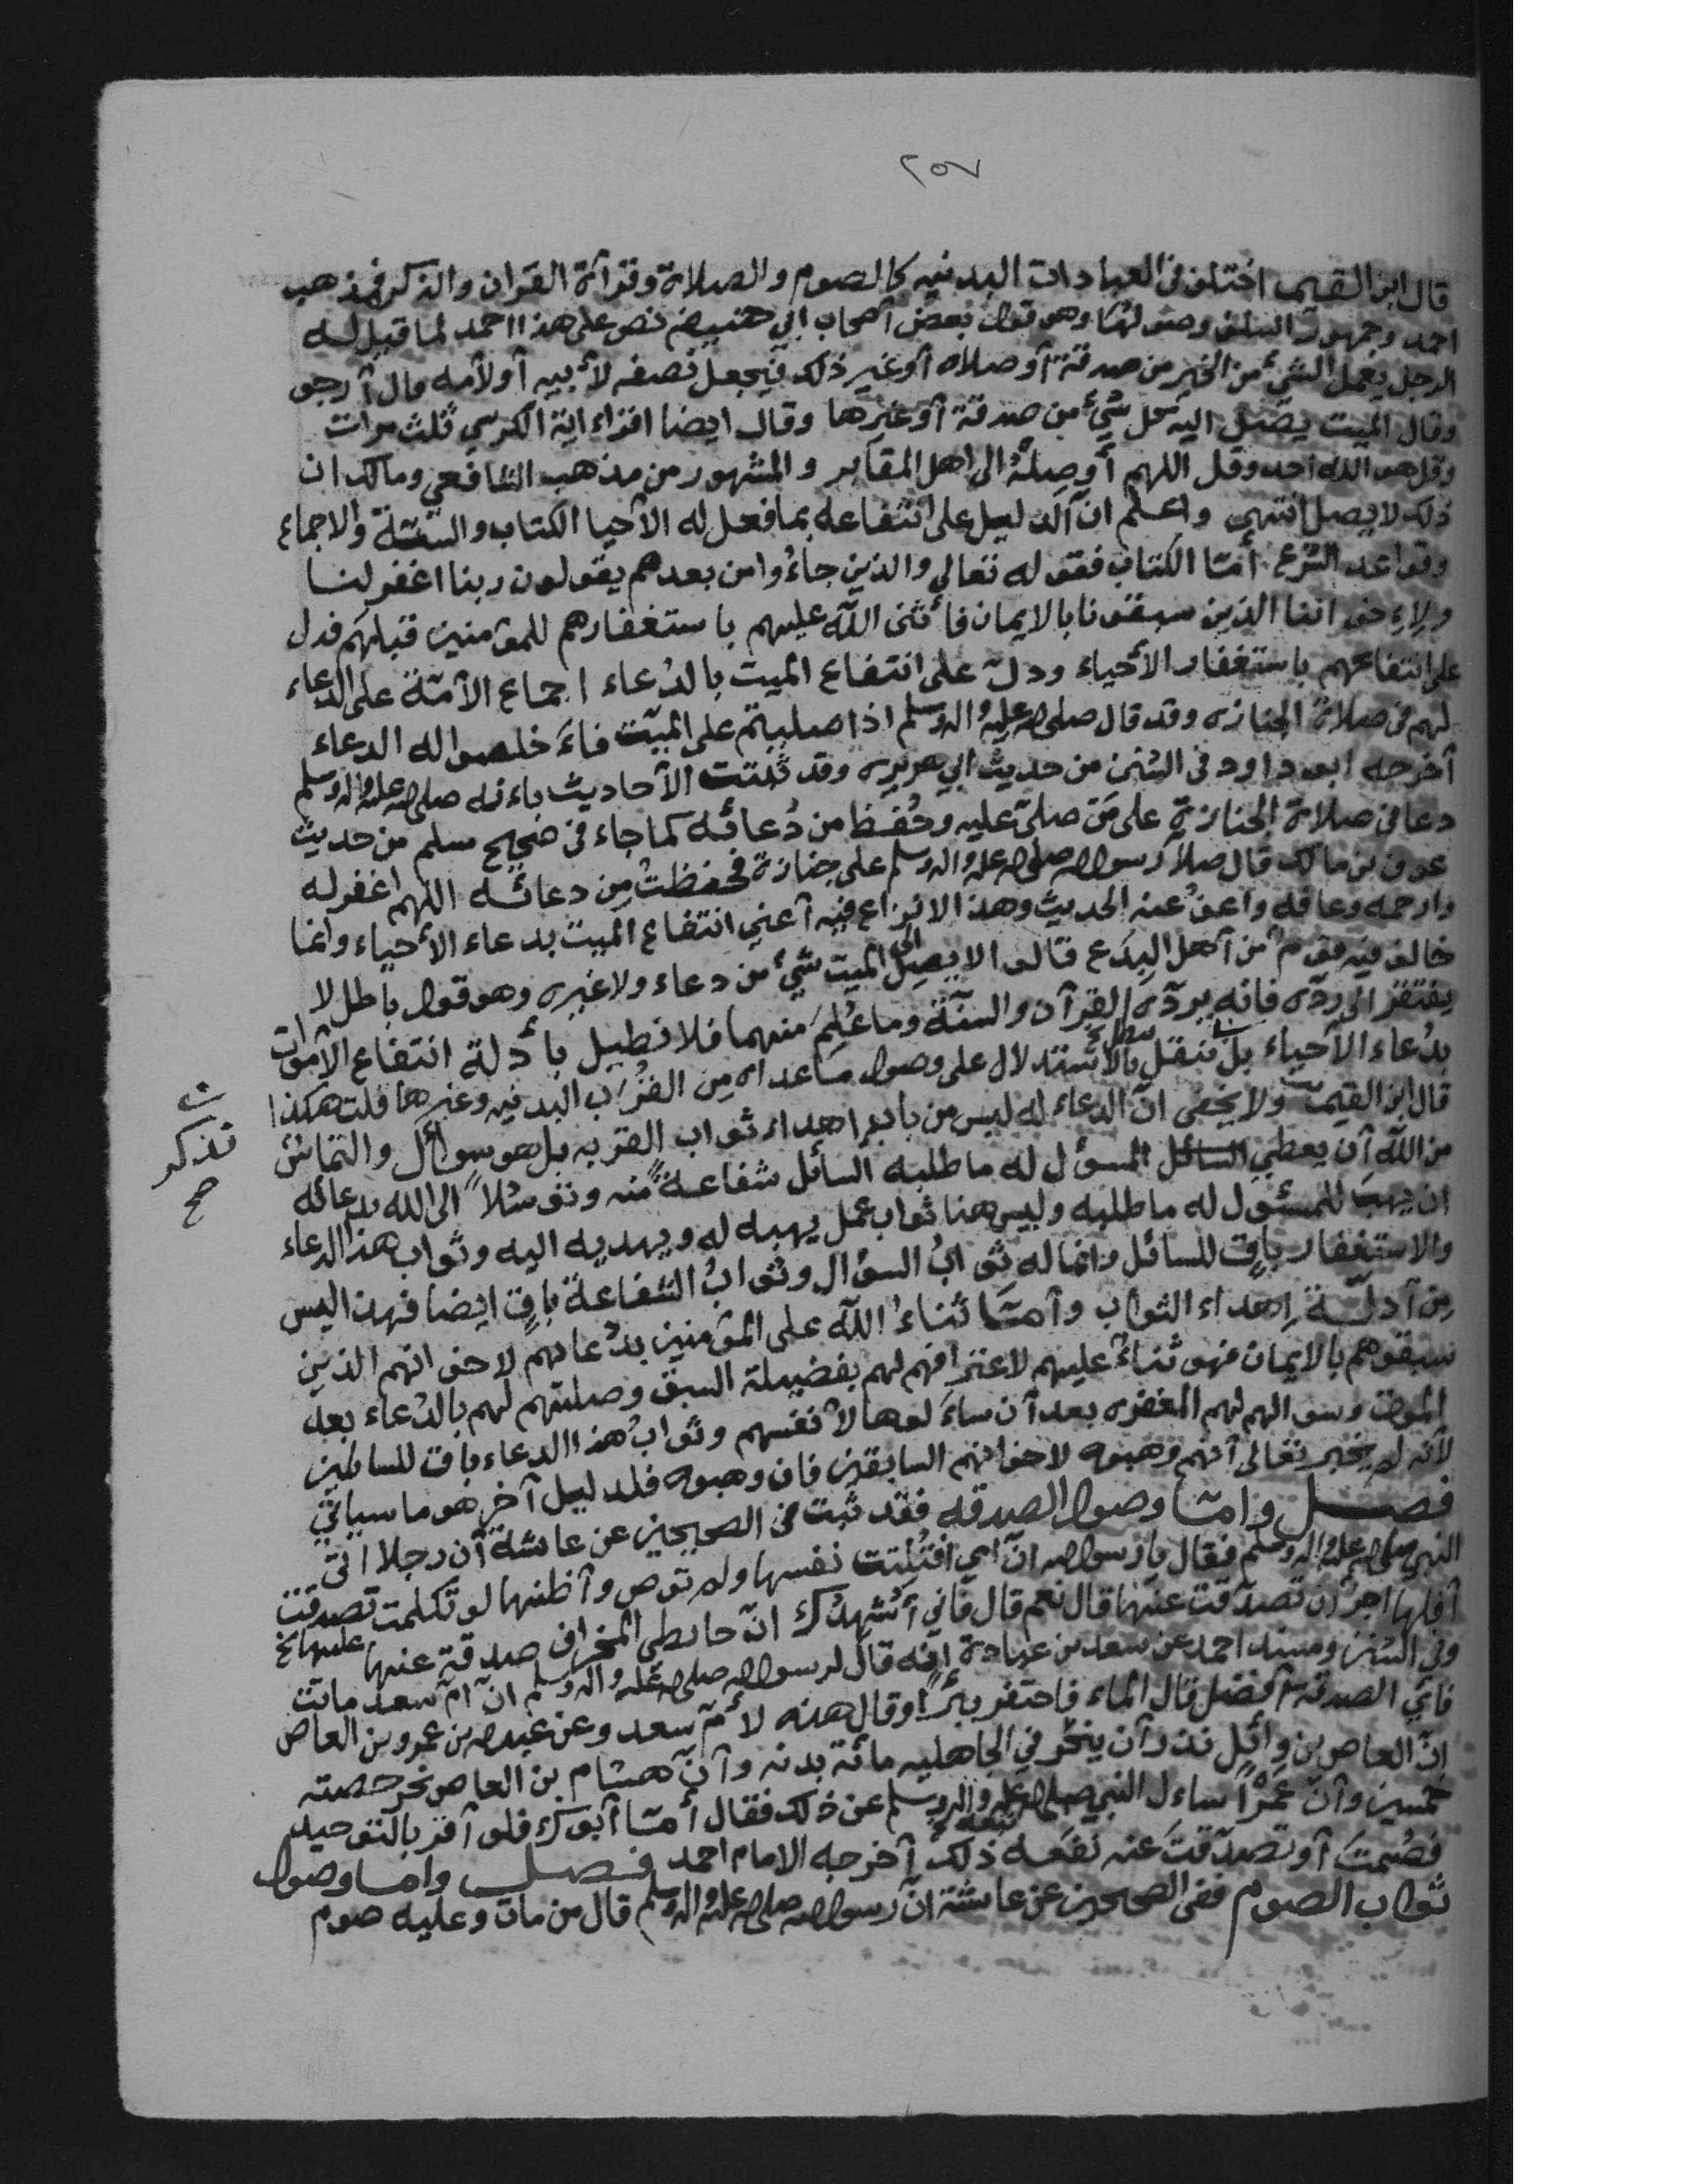 ٢٥٧
قال ابن القيم اختلف في العبادات البدنيه كالصوم والصلاة وقرآءة القران والذكر فمذهب
احمد وجمهور السلف وصولها وهو قول بعض أصحاب ابي حنيفه نص على هذا احمد لما قيل له
الرجل يعمل الشئ من الخير من صدقة أو صلاه أو غير ذلك فيجعل نصفه لأبيه أو لأمه قال أرجو
وقال الميت يصل اليه كل شئ من صدقة أو غيرها وقال ايضا اقراء اية الكرسي ثلث مرات
وقل هو الله احد وقل اللهم أوصله الى اهل المقابر والمشهور من مذهب الشافعي ومالك ان
ذلك لا يصل انتهى واعلم ان الدليل على انتفاعه بما فعل له الأحيا الكتاب والسنة والاجماع
وقواعد الشرع أمّا الكتاب فقوله تعالى والذين جاءُوا من بعدهم يقولون ربنا اغفر لنا
ولإخواننا الذين سبقونا بالايمان فأثنى الله عليهم باستغفارهم للمؤمنين قبلهم فدل
على انتفاعهم باستغفار الأحياء ودل على انتفاع الميت بالدُعاء اجماع الأمّة على الدعاء
لهم في صلاة الجنازه وقد قال صلى الله عليه واله وسلم اذا صليتم على الميّت فأخلصوا له الدعاء
أخرجه ابو داود في السنن من حديث ابي هريره وقد ثبتت الأحاديث باءنه صلى الله عليه واله وسلم
دعا في صلاة الجنازة على مَن صلىّ عليه وحُفظ من دُعائه كما جاء في صحيح مسلم من حديث
عوف بن مالك قال صلا رسول الله صلى الله عليه واله وسلم على جنازة فحفظتُ مِن دعائه اللهم اغفر له
وارحمه وعافه واعفُ عنه الحديث وهذا لا نزاع فيه أعني انتفاع الميت بدعاء الأحياء وانما
خالف فيه قوم من أهل البدَع قالوا لا يصل الى الميت شئ من دعاء ولا غيره وهو قول باطل لا
يفتقر الى ردّه فانه يردّه القرآن والسنّة وما عُلِمَ منهما فلا نطيل بأدلة انتفاع الأموات
بدُعاء الأحياء بل ننقل بالأستدلال على وصول ماعداه مِن القُرَب البدنيه وغيرها قلت هكذا
قال ابن القيم ولا يخفى انّ الدعاء له ليس من باب اهداء ثواب القربه بل هو سوأل والتماسٌ
ن
تذكر
صح
من الله أن يعطي المسؤل له ما طلبه السائل شفاعةً منه وتوسّلاً الى الله بدعائه
ان يهبَ للمسئول له ما طلبه وليس هنا ثواب عمل يهبه له ويهديه اليه وثواب هذا الدعاء
والاستغفار باقٍ للسائل وانما له ثوابُ السؤال وثوابُ الشفاعة باقٍ ايضا فهذا ليس
مِن أدلّة إهداء الثواب وأمّا ثناءُ الله على المؤمنين بدُعائهم لاخوانهم الذين
سبقوهم بالايمان فهو ثناءٌ عليهم لاعترافهم لهم بفضيلة السبق وصلتهم لهم بالدُعاء بعد
الموت وسوالهم لهم المغفره بعد أن سألوها لأنفسهم وثوابُ هذا الدعاء باق للسائلين
لأنه لم يخبر تعالى أنهم وهبوه لاخوانهم السابقين فان وهبوه فلدليل آخر هو ما سيأتي
فصل وامّا وصول الصدقه فقد ثبت في الصحيحين عن عائشة أن رجلا اتى
النبي صلى الله عليه واله وسلم فقال يا رسول الله انّ امي افتُلِتت نفسها ولم توص وأظنها لو تكلمت تصدقت
أفلها اجر أن تصدّقت عنها قال نعم قال فاني أُشهدُك انّ حائطي المخراف صدقة عنها
عليها نخ
وفي السنن ومسند احمد عن سعد بن عبادة إنّه قال لرسول الله صلى الله عليه واله وسلم انّ أمّ سعد ماتت
فأي الصدقة أفضل قال الماء فاحتفر بئراً وقال هذه لأمّ سعد وعن عبد الله بن عمرو بن العاص
انّ العاص بن وائل نذر أن ينحَر في الجاهليه مائة بدنه وأنّ هشام بن العاص نحر حصته
خمسين وأنّ عَمْراً ساءل النبي صلى الله عليه واله وسلم عن ذلك فقال أمّا أبوك فلو أقر بالتوحيد
فصُمتَ أو تصدّقتَ عنه نفعه ذلك أخرجه الامام احمد فصل واما وصول
ثواب الصوم ففي الصحيحين عن عائشة انّ رسول الله صلى الله عليه واله وسلم قال من مات وعليه صوم